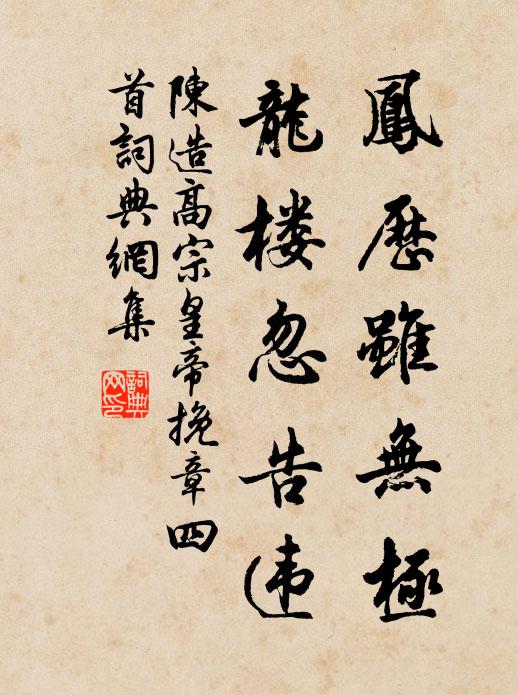 鳳歷雖無極
龍楼忽告违
陳造高宗皇帝挽章四
首詞典網集
詞典網印